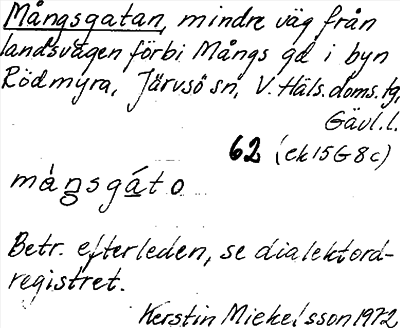 Mångsgatan, mindre väg från
landsvägen förbi Mångs gd i byn
Rödmyra, Järvsö sn, V. Häls. doms. tg,
Gävl. l.
62 (ek 15 G 8 c)
må̀n̥sgá̱to
Betr. efterleden, se dialektord-
registret.
Kerstin Mickelsson 1972